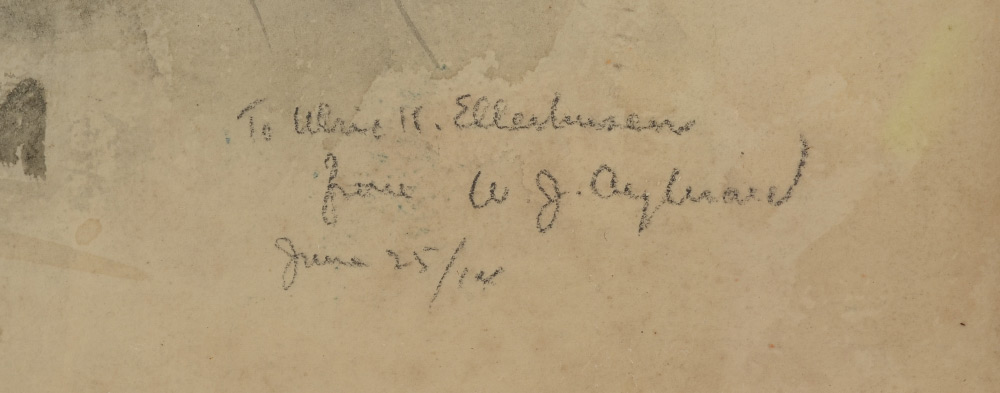 To Ulric H. Ellerhusen
from W J. Aylward
June 25/14